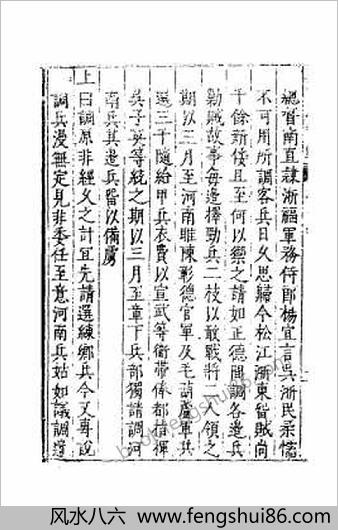 總督南直隸浙福軍務侍郎楊宜言吳浙民柔懦
不可用所調客兵日久思歸今松江浙東皆賊尚
千餘新倭且至何以禦之請如正德間調各邊兵
勦賊故事每邊擇勁兵二枝以敢戰將二人領之
期以三月至河南睢陳彰德官軍及毛葫蘆軍兵
選三千隨給甲兵衣費以宣武等衛帶俸都指揮
吳子英等統之期以三月至章下兵部獨請調河
南兵其邊兵留以備虜
上曰調原非經久之計宜先請選練鄉兵今又專說
調兵漫無定見非委任至意河南兵姑如議調邊
风水八六 www.fengshui86.com